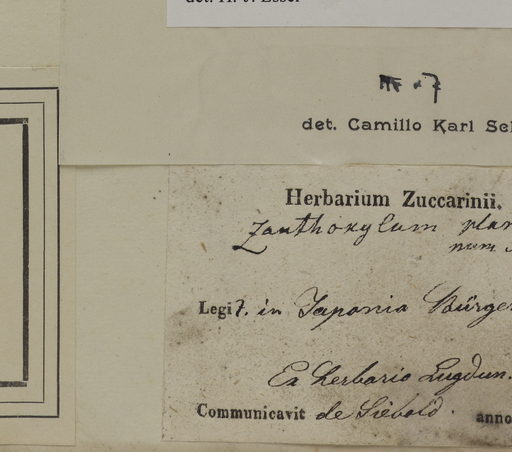 det. H. J. Esser
det. Camillo Karl Sc
Herbarium Zuccarinii.
Zanthoxylum plan
num
Legit. in Japonia Bürger
Ex herbario Lugdun.
Communicavit de Siebold. anno